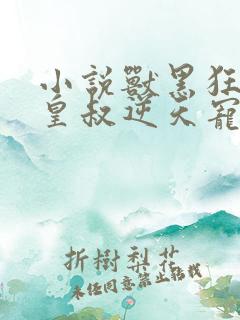 小說獸黑狂
皇叔逆天寵
折樹梨花
未經同意禁止轉載